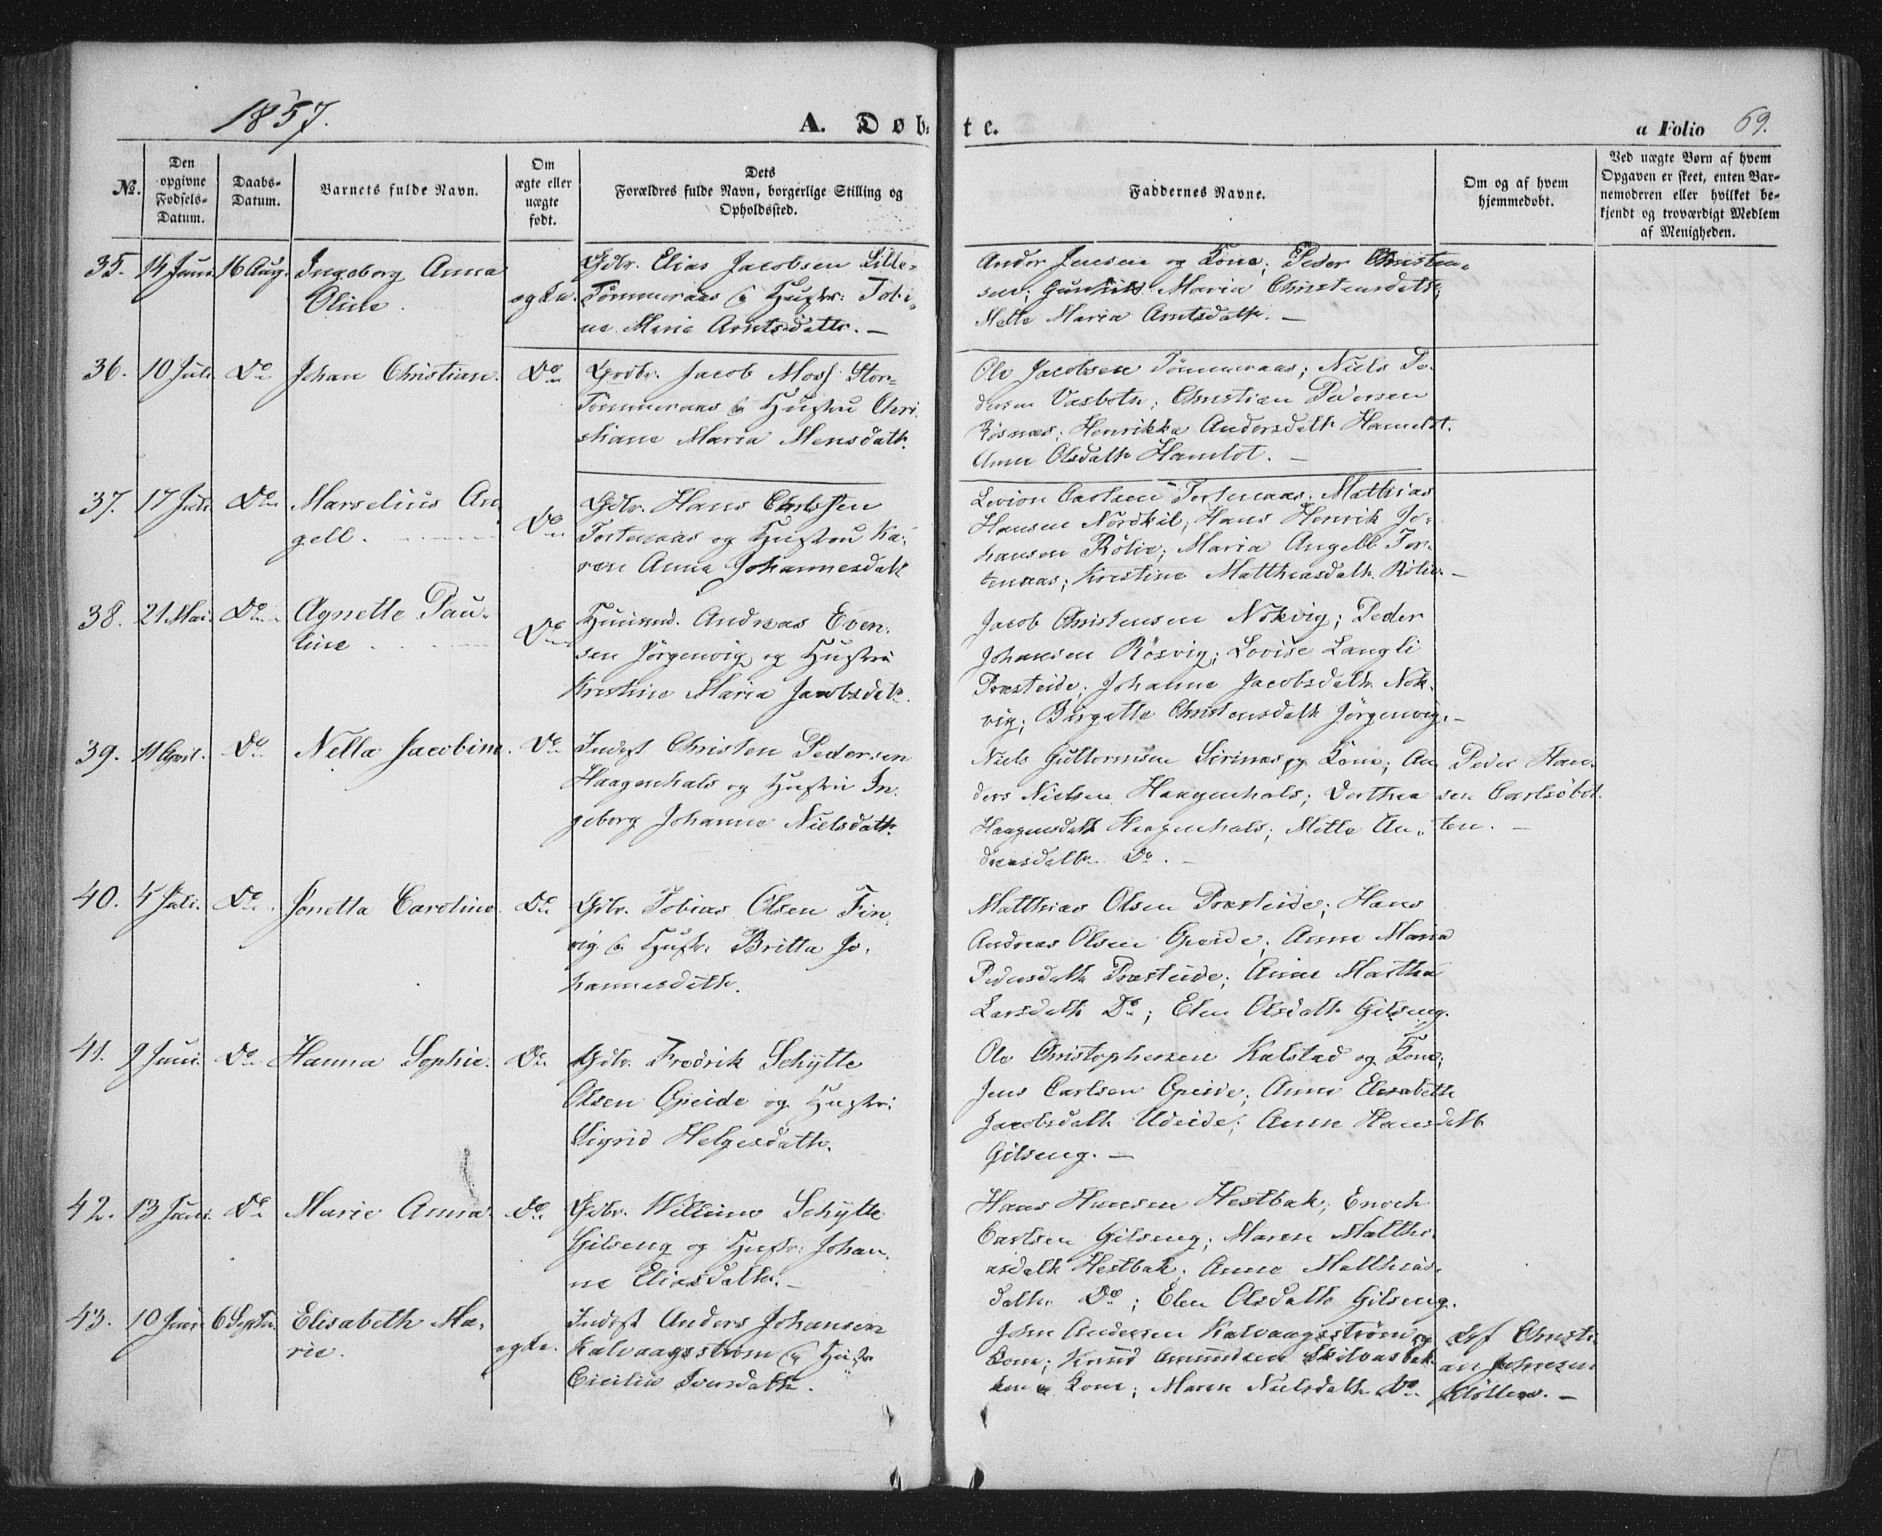 1857.
A. Døbte.
a Folio 69.
No.
Den opgivne Fødsels-Datum.
Daabs-Datum.
Barnets fulde Navn.
Om ægte eller uægte født.
Dets Forældres fulde Navn, borgerlige Stilling og Opholdssted.
Faddernes Navne.
Om og af hvem hjemmedøbt.
Ved uægte Børn af hvem Opgaven er skeet, enten Barnemoderen eller hvilket bekjendt og troværdigt Medlem af Menigheden.
35. 14 Juni 16 Aug. Ingeborg Anna
Oline
ægte.
Gdbr. Elias Jacobsen Lille-
Tømmeraas & Hustr: Tobi-
ne Maria Arntsdattr. —
Ander Jensen og Kone; Peder Christen-
sen; Maria Christensdattr;
Mette Maria Arntsdattr. —
36. 10 Juli Do Johan Christian. Do
Grdbr. Jacob Moss Stor-
Tømmeraas & Hustru Chri
stiane Maria Monsdattr.
Ole Jacobsen Tømmeraas; Niels Pe-
dersen Vasbotn; Christian Pedersen
Røsnæs; Henrikka Andersdattr Hamlot.
Anne Olsdattr Hamlot. —
37. 17 Juli Do Marselius An
gell.
Do
Gdbr. Hans
Tortenaas og Hustru Ka-
ren Anna Johannesdattr
Carlsen Tortenaas; Mathias
Hansen Nordkil; Hans Henrik Jo-
hansen Rølie; Maria Angell Tor-
tenaas; Kristine Matthiasdattr Rølie —
38. 21 Mai Do Agnette Pau-
line
Do
Huusmd. Andreas Even-
sen Jørgenvig og Hustru
Kristine Maria Jacobsdatr.
Jacob Christensen Nokvig; Peder
Johansen Røsvig; Lovise Langli
Præsteide; Johanne Jacobsdattr Nok-
vig; Birgette Christensdattr Jørgenvig. —
39. 11 April. Do Nella Jacobine. Do
Inderst Christen Pedersen
Haagenhals og Hustru In-
geborg Johanna Nielsdattr.
Niels Guttormsen Sirinæs og Kone; An
ders Nielsen Haagenhals; Dorthea
Haagensdattr Haagenhals; Mette An-
dreasdattr Do. —
Peder Han-
sen Carlsøbot
ten. —
40. 4 Juli. Do Jonetta Caroline Do
Gdbr. Tobias Olsen Fin-
vig & Hustr: Britta Jo-
hannesdattr.
Matthias Olsen Præsteide; Hans
Andreas Olsen Opeide; Anne Maria
Pedersdattr Præsteide; Anne Martha
Larsdattr Do; Elen Olsdattr Gilseng.
41. 9 Juni Do Hanna Sophie. Do
Gdbr. Fredrik Schytte
Olsen Opeide og Hustr:
Sigrid Helgesdattr.
Ole Christophersen Kalstad og Kone;
Jens Carlsen Opeide; Anne Elisabeth
Jacobsdattr Udeide; Anne Hansdattr
Gilseng. —
42. 13 Juni Do Marie Anna Do
Gdbr. Willum Schytte
Gilseng og Hustr: Johan-
ne Eliasdattr. —
Hans Hansen Hestbak; Enoch
Carlsen Gilseng; Maren Matthi-
asdattr Hestbak; Anne Matthias-
dattr Do; Elen Olsdattr Gilseng.
43. 10 Juni 6 Septbr Elisabeth Ma-
rie.
ægte.
Inderst Anders Johansen
Kalvaagsstrøm & Hustr
Cicilia Iversdattr.
John Andersen Kalvaagsstrøm og
Kone; Knud Amundsen Skilvasbak
ken & Kone; Maren Nielsdattr Do.
Christi-
an Johnsen
Møller. —